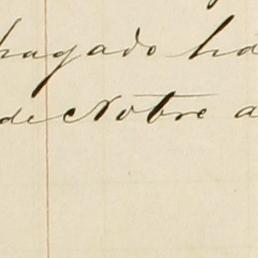 pagado ha
de Nobre a